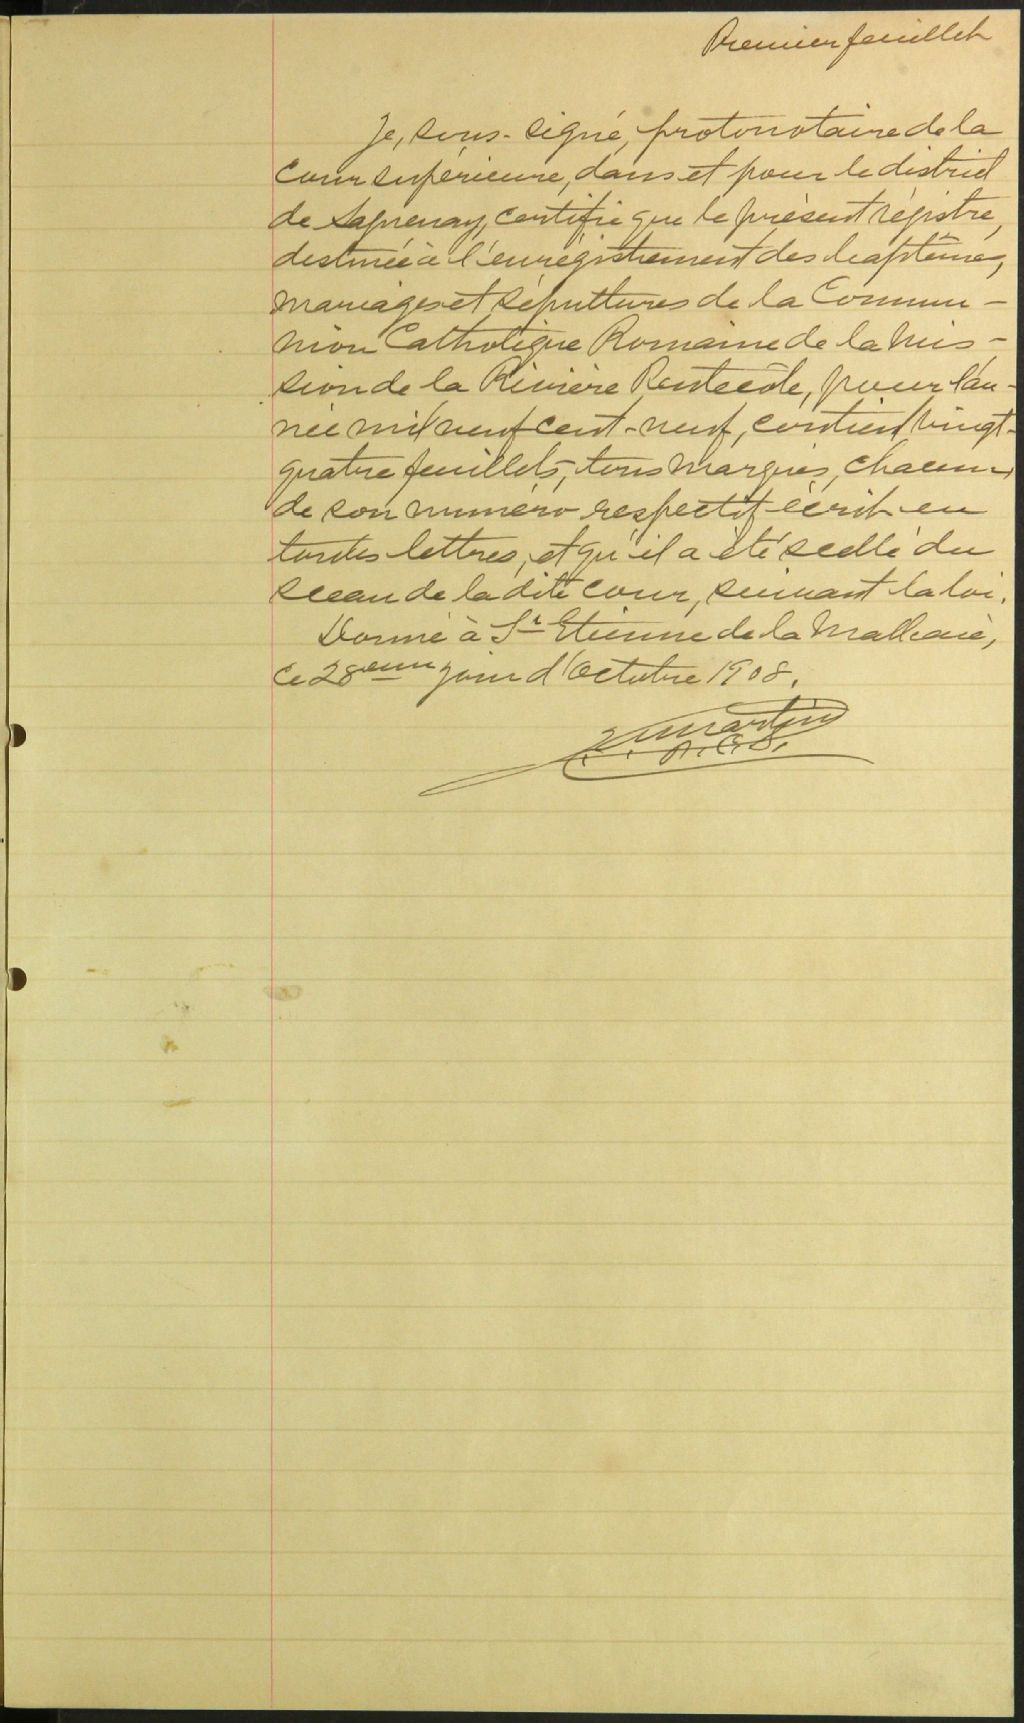 Premier feuillet
Je, sous-signé, protonotaire de la
Cour supérieure, dans et pour le district
de Saguenay, certifie que le présent régistre,
destinée à l'enrégistrement des baptêmes,
mariages et sépultures de la Commu-
nion Catholique Romaine de la Mis-
sion de la Rivière Pentecôte, pour l'an-
née mil neuf cent-neuf, contient vingt-
quatre feuillets, tous marqués, chacun
de son numéro respectif écrit en
toutes lettres, et qu'il a été scellé du
sceau de la dite cour, suivant la loi.
Donné à St Etienne de la Malbaie,
ce 28eme jour d'Octobre 1908.
Martin